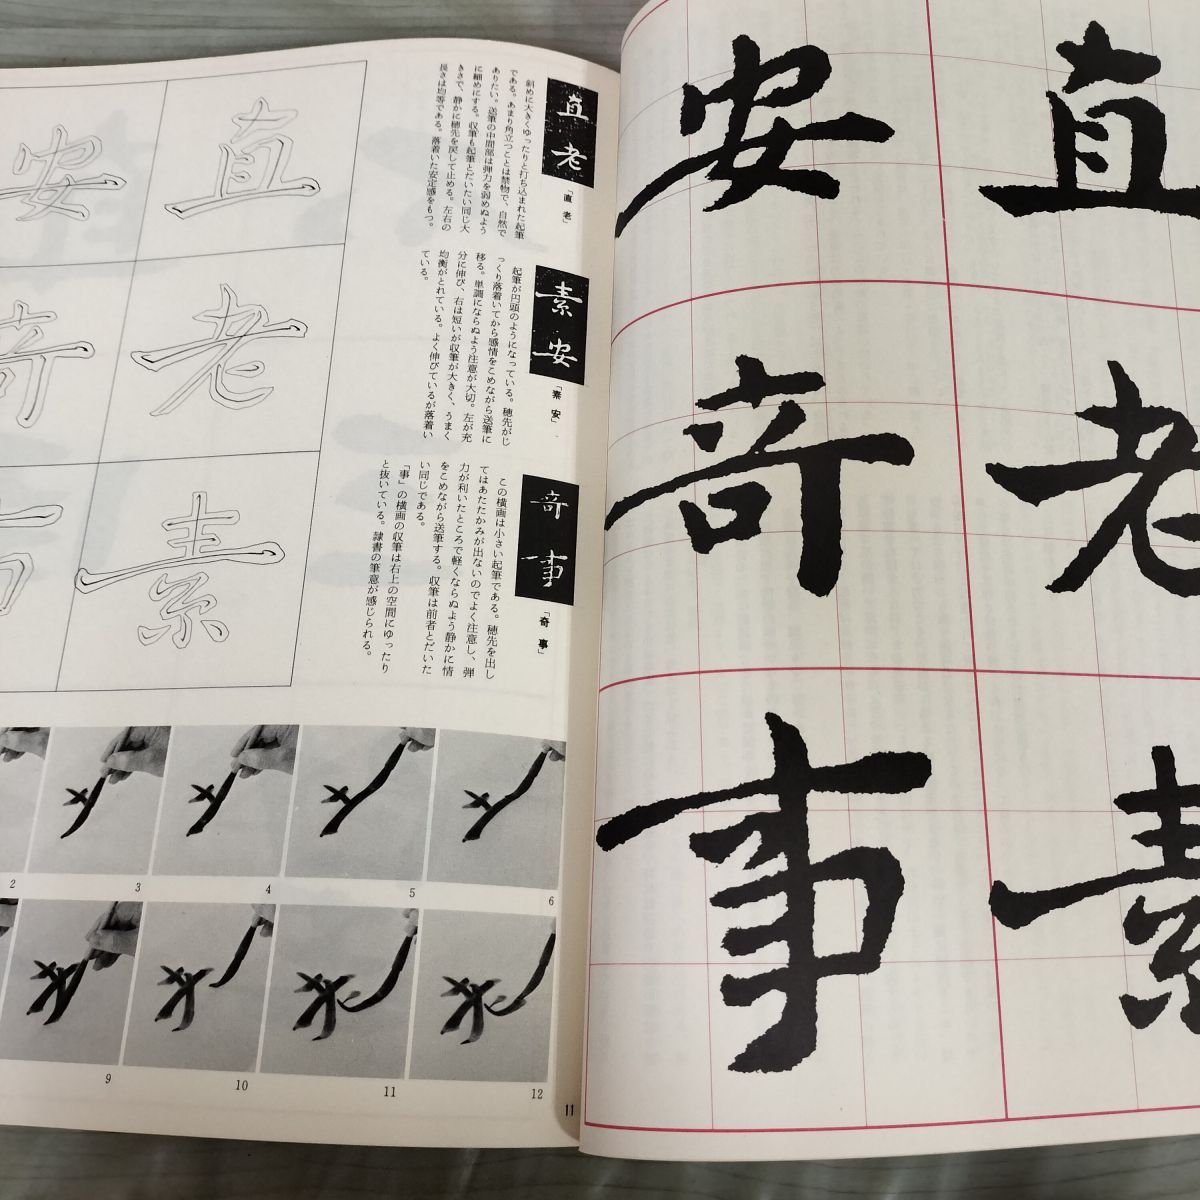 直
老
素
安
奇
事
直
老
「直老」
斜めに大きくゆったりと打ち込まれた起筆
である。あまり角立つことは禁物で、自然で
ありたい。送筆の中間部は弾力を弱めぬよう
に細めにする。収筆も起筆とだいたい同じ大
きさで、静かに穂先を戻して止める。左右の
長さは均等である。落着いた安定感をもつ。
素
安
「素安」
起筆が円頭のようになっている。穂先がじ
っくり落着いてから感情をこめながら送筆に
移る。単調にならぬよう注意が大切。左が充
分に伸び、右は短いが収筆が大きく、うまく
均衡がとれている。よく伸びているが落着い
ている。
奇
事
「奇事」
この横画は小さい起筆である。穂先を出し
てはあたたかみが出ないのでよく注意し、弾
力が利いたところで軽くならぬよう静かに情
をこめながら送筆する。収筆は前者とだいた
い同じである。
「事」の横画の収筆は右上の空間にゆったり
と抜いている。隷書の筆意が感じられる。
直
老
素
安
奇
2
3
4
5
6
9
10
11
12
11